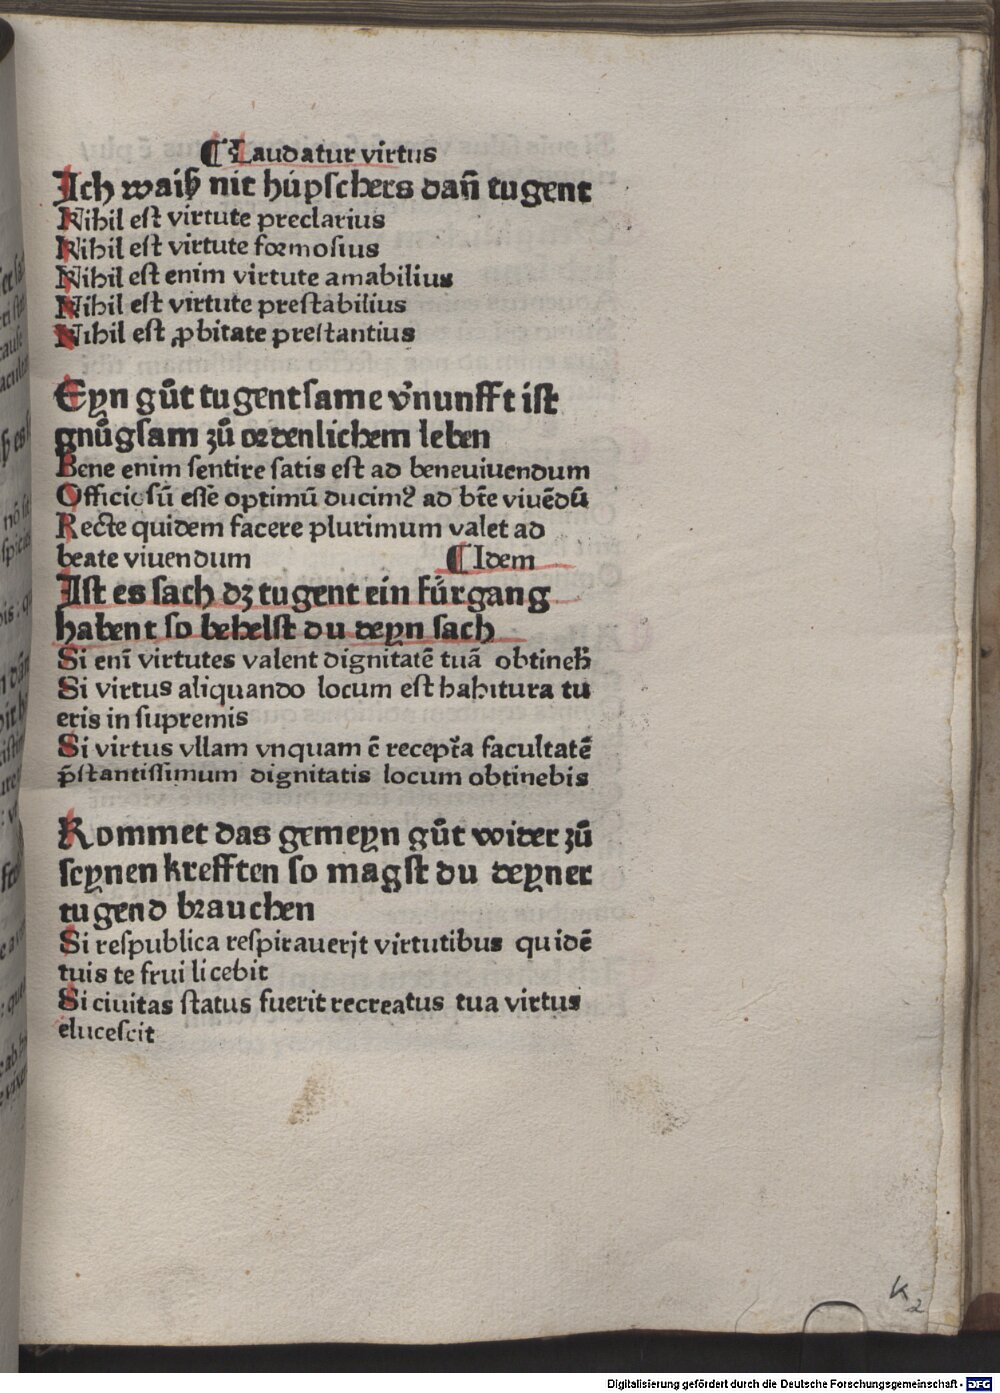 ¶ Laudatur virtus
Ich waiß nit húpschers dañ tugent
Nihil est virtute preclarius
Nihil est virtute formosius
Nihil est enim virtute amabilius
Nihil est virtute prestabilius
Nihil est ꝓbitate prestantius
Eyn gůt tugentsame v̉nunfft ist
gnůgsam zů ordenlichem leben
Bene enim sentire satis est ad beneuiuendum
Officiosū esse optimū ducimꝰ ad bt̄e viuēdū
Recte quidem facere plurimum valet ad
beate viuendum ¶ Idem
Ist es sach dz tugent ein fúrgang
habent so behelst du deyn sach
Si eni̅ virtutes valent dignitatē tuā obtineb̄
Si virtus aliquando locum est habitura tu
eris in supremis
Si virtus vllam vnquam ē recept̄a facultatē
p̄stantissimum dignitatis locum obtinebis
Kommet das gemeyn gůt wider zů
seynen krefften so magst du deyner
tugend brauchen
Si respublica respirauerit virtutibus quidē
tuis te frui licebit
Si ciuitas status fuerit recreatus tua virtus
elucescit
K2
Digitalisierung gefördert durch die Deutsche Forschungsgemeinschaft - DFG